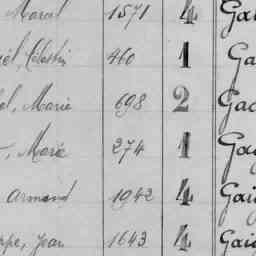 Marcel 1571 4 Ga
Célestin 460 1 Ga
Marie 698 2 Gad
Marie 274 1 Gag
Armand 1942 4 Gai
Jean 1643 4 Gaig